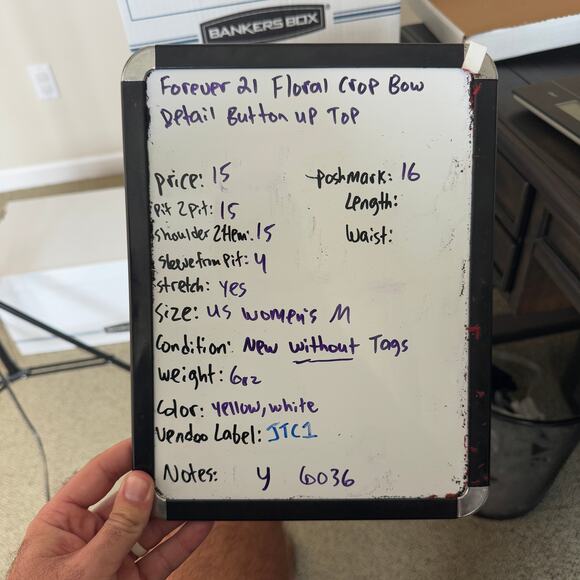 BANKERS BOX
Forever 21 Floral Crop Bow
Detail Button up Top
price: 15
poshmark: 16
Pit 2 Pit: 15
Length:
Shoulder 2 Hem: 15
Waist:
Sleeve from Pit: 4
stretch: yes
Size: US Women's M
Condition: New without Tags
weight: 6oz
Color: yellow, white
Vendoo Label: JTC1
Notes: y 6036